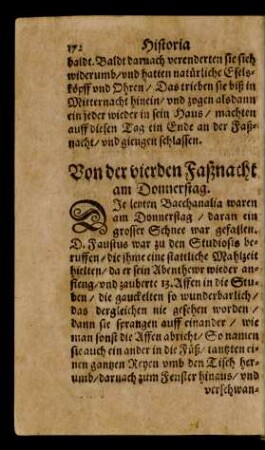 172 Historia
baldt. Baldt darnach verenderten sie sich
widerumb/vnd hatten natürliche Esels-
köpff vnd Ohren / Das trieben sie biß in
Mitternacht hinein/ vnd zogen alsdann
ein jeder wieder in sein Haus / machten
auff diesen Tag ein Ende an der Faß-
nacht/ vnd giengen schlaffen.
Von der vierden Faßnacht
am Donnerstag.
DIe letzten Bacchanalia waren
am Donnerstag / daran ein
grosser Schnee war gefallen.
D. Faustus war zu den Studiosis be-
ruffen/ die jhme eine stattliche Mahlzeit
hielten/ da er sein Abenthewr wieder an-
fieng/ vnd zauberte 13. Affen in die Stu-
ben/ die gauckelten so wunderbarlich/
das dergleichen nie gesehen worden /
dann sie sprangen auff einander / wie
man sonst die Affen abricht/ So namen
sie auch ein ander in die Füß/ tantzten ei-
nen gantzen Reyen vmb den Tisch her-
umb/ darnach zum Fenster hinaus/ vnd
verschwan-